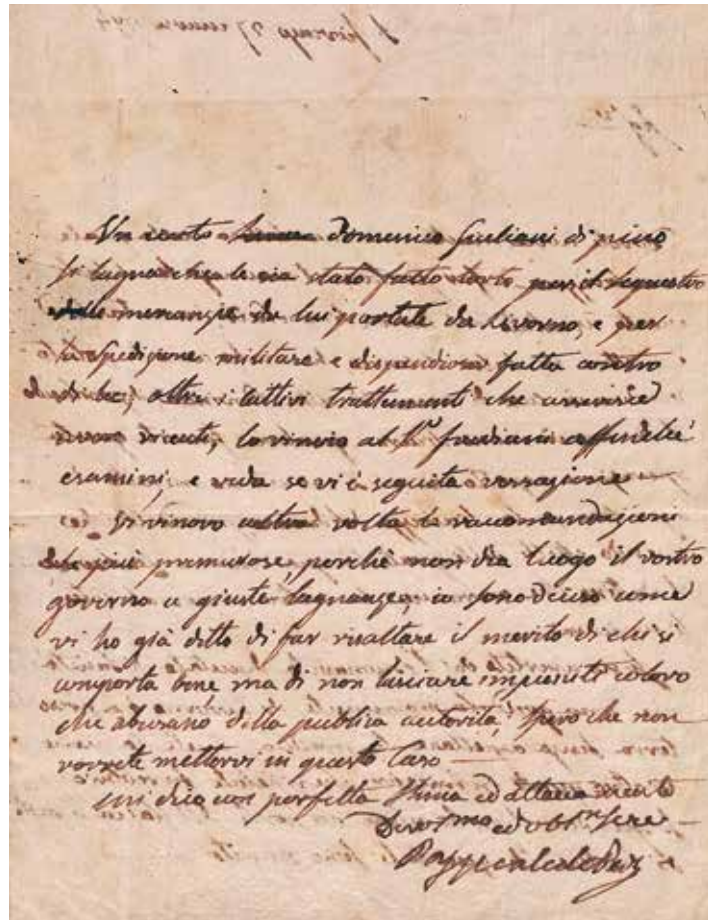 Un certo Domenico Giuliani di pino
si lagna che le sia stato fatto torto per il sequestro
delle mercanzie da lui portate da Livorno, e per
la spedizione militare e dispendiosa fatta contro
di lui, oltre i cattivi trattamenti che asserisce
aver ricevuti, lo rinvio al affinché
esamini, e veda se vi è seguita vessazione
Vi rinovo altra volta le raccomandazioni
le più premurose, perché non dia luogo il vostro
governo a giuste lagnanze, io sono deciso come
vi ho già detto di far risaltare il merito di chi si
comporta bene ma di non lasciare impuniti coloro
che abusano della publica autorità, spero che non
vorrete mettervi in questo Caso
mi dico con perfetta stima ed attaccamento
Devot.mo ed obb.